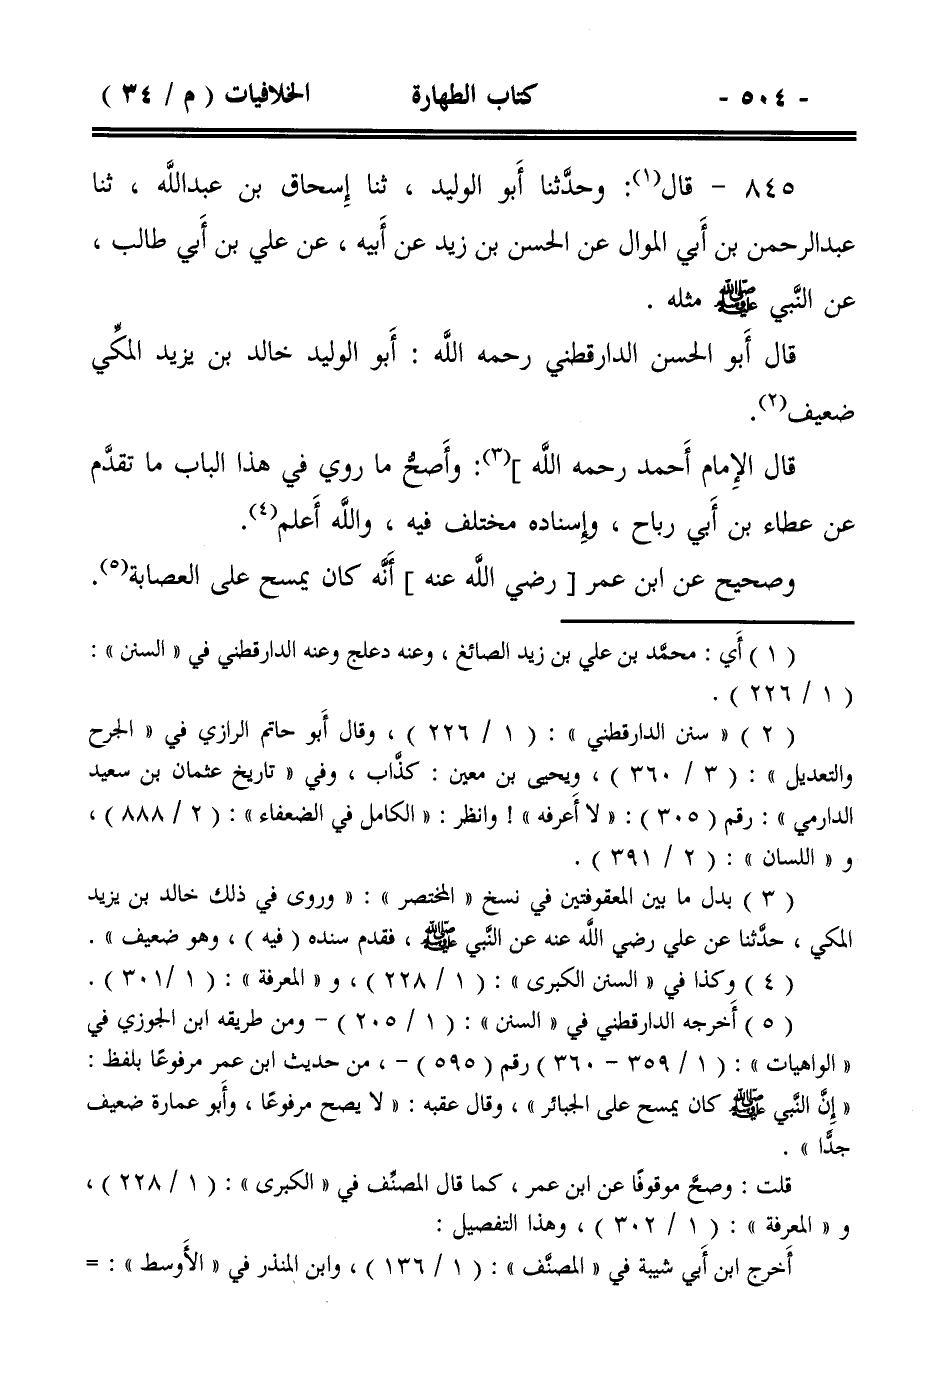 - ٥٠٤ - كتاب الطهارة الخلافيات ( م / ٣٤ )
٨٤٥ - قال(١): وحدَّثنا أَبو الوليد ، ثنا إِسحاق بن عبداللَّه ، ثنا
عبدالرحمن بن أَبي الموال عن الحسن بن زيد عن أَبيه ، عن علي بن أَبي طالب ،
عن النَّبي ﷺ مثله .
قال أَبو الحسن الدارقطني رحمه اللَّه : أَبو الوليد خالد بن يزيد المكِّي
ضعيف(٢).
قال الإِمام أَحمد رحمه اللَّه ](٣): وأَصحُّ ما روي في هذا الباب ما تقدَّم
عن عطاء بن أَبي رباح ، وإِسناده مختلف فيه ، واللَّه أَعلم(٤).
وصحيح عن ابن عمر [ رضي اللَّه عنه ] أَنَّه كان يمسح على العصابة(٥).
( ١ ) أَي : محمَّد بن علي بن زيد الصائغ ، وعنه دعلج وعنه الدارقطني في « السنن » :
( ١ / ٢٢٦ ) .
( ٢ ) « سنن الدارقطني » : ( ١ / ٢٢٦ ) ، وقال أَبو حاتم الرازي في « الجرح
والتعديل » : ( ٣ / ٣٦٠ ) ، ويحيى بن معين : كذَّاب ، وفي « تاريخ عثمان بن سعيد
الدارمي » : رقم ( ٣٠٥ ) : « لا أَعرفه » ! وانظر : « الكامل في الضعفاء » : ( ٢ / ٨٨٨ ) ،
و « اللسان » : ( ٢ / ٣٩١ ) .
( ٣ ) بدل ما بين المعقوفتين في نسخ « المختصر » : « وروى في ذلك خالد بن يزيد
المكي ، حدَّثنا عن علي رضي اللَّه عنه عن النَّبي ﷺ ، فقدم سنده ( فيه ) ، وهو ضعيف » .
( ٤ ) وكذا في « السنن الكبرى » : ( ١ / ٢٢٨ ) ، و « المعرفة » : ( ١ /٣٠١ ) .
( ٥ ) أَخرجه الدارقطني في « السنن » : ( ١ / ٢٠٥ ) - ومن طريقه ابن الجوزي في
« الواهيات » : ( ١ / ٣٥٩ - ٣٦٠ ) رقم ( ٥٩٥ ) - ، من حديث ابن عمر مرفوعًا بلفظ :
« إِنَّ النَّبي ﷺ كان يمسح على الجبائر » ، وقال عقبه : « لا يصح مرفوعًا ، وأَبو عمارة ضعيف
جدًّا » .
قلت : وصحَّ موقوفًا عن ابن عمر ، كما قال المصنِّف في « الكبرى » : ( ١ / ٢٢٨ ) ،
و « المعرفة » : ( ١ / ٣٠٢ ) ، وهذا التفصيل :
أَخرج ابن أَبي شيبة في « المصنَّف » : ( ١ / ١٣٦ ) ، وابن المنذر في « الأَوسط » : =